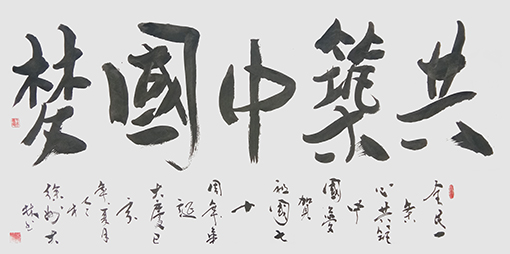 共築中國梦
全民一
条
心共筑
中
國夢
賀
祖國七
十
周年華
诞
大慶己
亥
年夏月
於
徐州大